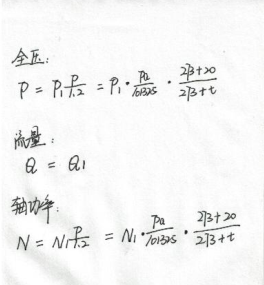 全压:
P = P₁ρ/1.2 = P₁·Pa/101325 · 273+20/273+t
流量:
Q = Q₁
轴功率:
N = N₁ρ/1.2 = N₁·Pa/101325 · 273+20/273+t